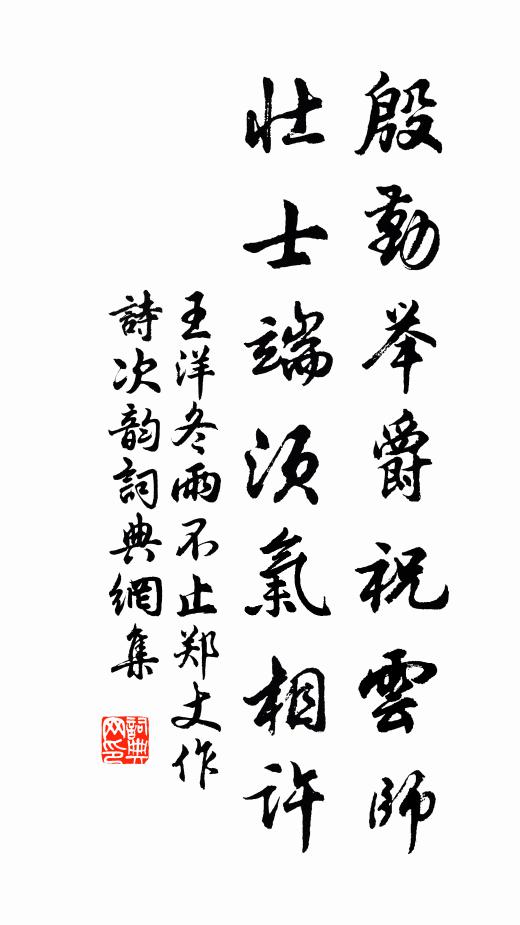 殷勤举爵祝雲師
壮士端須氣相許
王洋冬雨不止郑丈作
詩次韵詞典網集
詞典
网印